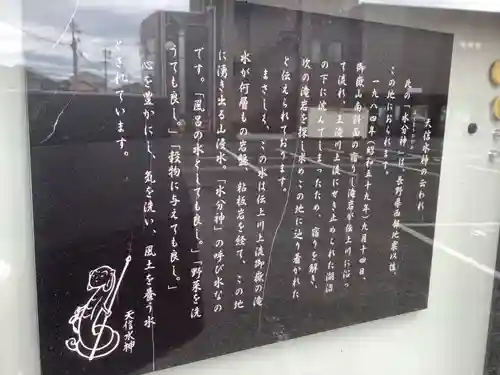 天信水神の云われ
此の「水分神」は、長野県西部地震以後、
この地におられます。
一九八四年(昭和五十九年)九月十四日、
御嶽山南斜面の宿りし滝岩が伝上川に沿っ
て流れ、王滝川上流にせき止められた湖沼
の下に沈んでしまったため、宿りを解き、
次の滝岩を探し求めこの地に辿り着かれた
と伝えられております。
まさしく、この水は伝上川上流御嶽の滝
水が何層もの岩盤、粘板岩を経て、この地
に湧き出る山漫水。「水分神」の呼び水なの
です。「風呂の水としても良し。」「野菜を洗
うても良し。」「穀物に与えても良し。」
心を豊かにし、気を洗い、風土を養う水
とされています。
天信水神